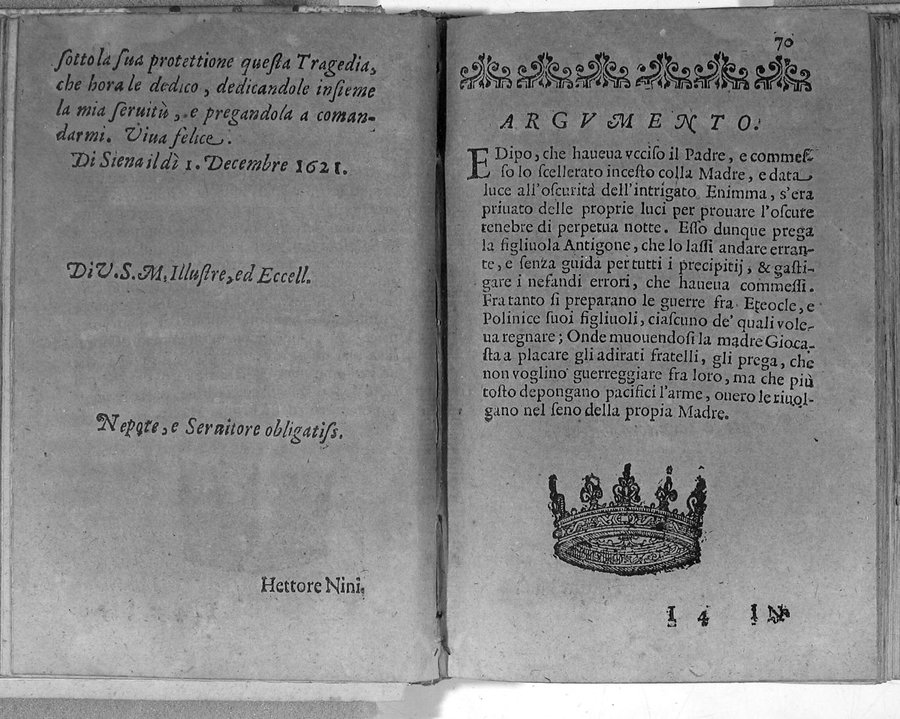 ſotto la ſua protettione queſta Tragedia,
che hora le dedico, dedicandole inſieme
la mia ſeruitù, e pregandola a coman-
darmi. Viua felice.
Di Siena il dì 1. Decembre 1621.
Di V. S. M. Illuſtre, ed Eccell.
Nepote, e Seruitore obligatiſs.
Hettore Nini.
70
ARGVMENTO.
EDipo, che haueua vcciſo il Padre, e commeſ-
ſo lo ſcellerato inceſto colla Madre, e data
luce all'oſcurità dell'intrigato Enimma, s'era
priuato delle proprie luci per prouare l'oſcure
tenebre di perpetua notte. Eſſo dunque prega
la figliuola Antigone, che lo laſſi andare erran-
te, e ſenza guida per tutti i precipitij, & gaſti-
gare i nefandi errori, che haueua commeſſi.
Fra tanto ſi preparano le guerre fra Eteocle, e
Polinice ſuoi figliuoli, ciaſcuno de' quali vole-
ua regnare; Onde muouendoſi la madre Gioca-
ſta a placare gli adirati fratelli, gli prega, che
non voglino guerreggiare fra loro, ma che più
toſto depongano pacifici l'arme, ouero le riuol-
gano nel ſeno della propia Madre.
I 4 IN